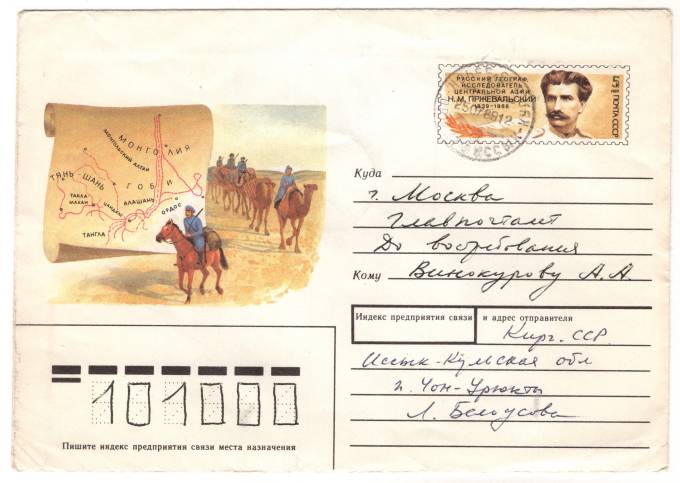 РУССКИЙ ГЕОГРАФ,
ИССЛЕДОВАТЕЛЬ
ЦЕНТРАЛЬНОЙ АЗИИ
Н.М. ПРЖЕВАЛЬСКИЙ
1839-1888
ПОЧТА СССР
МОНГОЛИЯ
МОНГОЛЬСКИЙ АЛТАЙ
ТЯНЬ-ШАНЬ
ГОБИ
ТАКЛА-
МАКАН
ЦАЙДАМ
АЛАШАНЬ
ОРДОС
ТАНГЛА
Куда
г. Москва
Главпочтамт
До востребования
Кому Винокурову А. А.
Индекс предприятия связи и адрес отправителя
Кирг. ССР
Иссык-Кульская обл
п. Чон-Урюкты
Л. Белоусова
101000
Пишите индекс предприятия связи места назначения